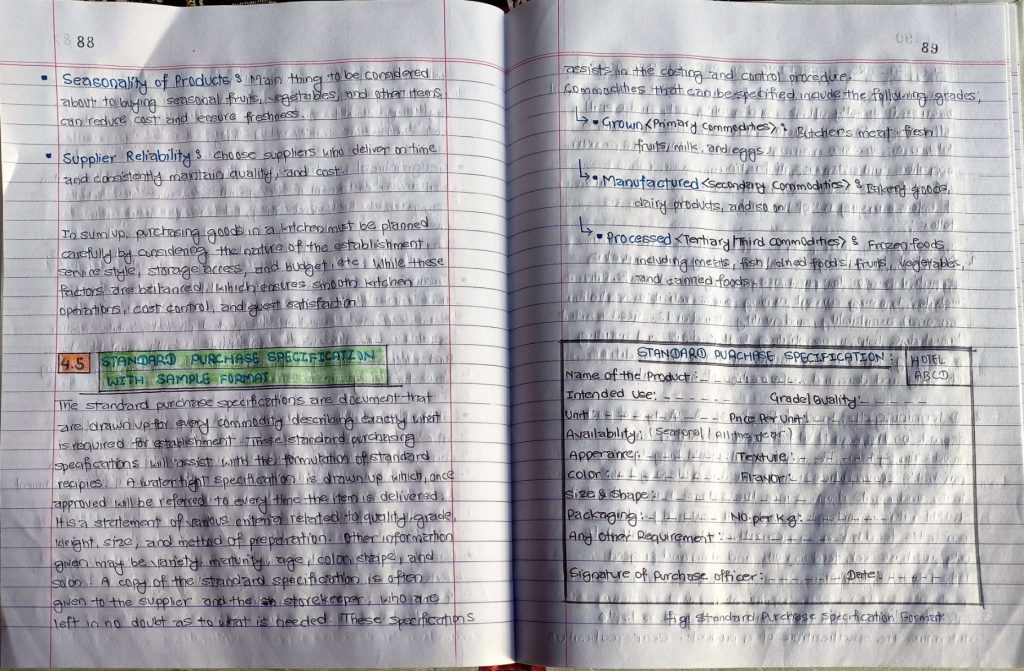 88
• Seasonality of Products : Main thing to be considered
about to buying seasonal fruits, vegetables, and other items
can reduce cost and ensure freshness.
• Supplier Reliability : choose suppliers who deliver on time
and consistently maintain quality, and cost.
To sum up, purchasing goods in a kitchen must be planned
carefully by considering the nature of the establishment,
service style, storage access, and budget, etc. While these
factors are balanced, which ensures smooth kitchen
operations, cost control, and guest satisfaction.
4.5 STANDARD PURCHASE SPECIFICATION
WITH SAMPLE FORMAT
The standard purchase specifications are document that
are drawn up for every commodity describing exactly what
is required for establishment. These standard purchasing
specifications will assist with the formulation of standard
recipies. A watertight specification is drawn up which, once
approved will be referred to every time the item is delivered.
It is a statement of various criteria related to quality, grade,
weight, size, and method of preparation. Other information
given may be variety, maturity, age, color, shape, and
so on. A copy of the standard specification is often
given to the supplier and the storekeeper, who are
left in no doubt as to what is needed. These specifications
89
assists in the costing and control procedure.
Commodities that can be specified include the following grades;
↳ • Grown <Primary Commodities> : Butcher's meat, fresh
fruits, milk, and eggs.
↳ • Manufactured <Secondary Commodities> : Bakery goods,
dairy products, and so on.
↳ • Processed <Tertiary/Third Commodities> : Frozen foods
including meats, fish, dried foods, fruits, vegetables,
and canned foods.
STANDARD PURCHASE SPECIFICATION : HOTEL
ABCD
Name of the Product :
Intended Use: Grade/Quality:
Unit: Price Per Unit:
Availability: (Seasonal / All the year)
Apperance: Texture:
Color: Flavor:
Size & Shape:
Packaging: No. per kg:
Any Other Requirement:
Signature of Purchase officer: Date:
Fig: Standard Purchase Specification Format